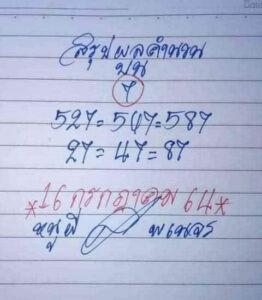 สรุปผลคำนวน
บน
7
527=547=587
27=47=87
*16 กรกฎาคม 64*
หนูผี พเนจร